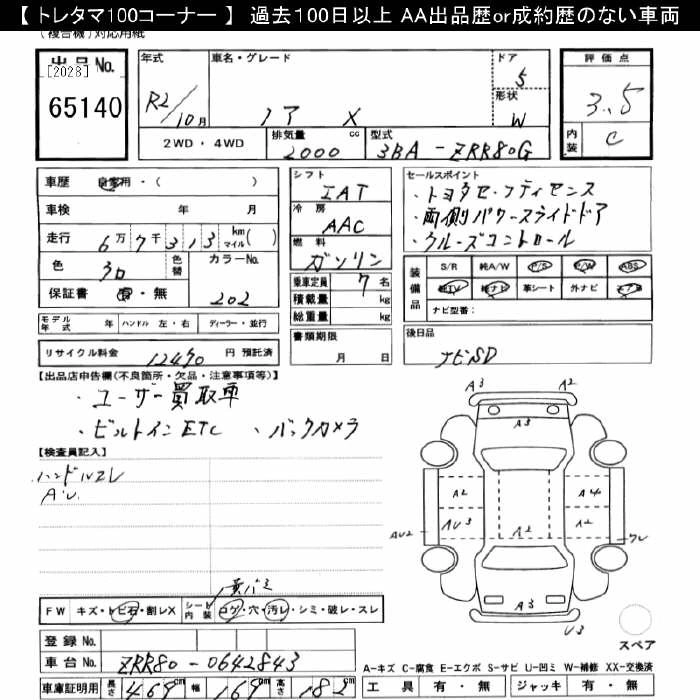 【 トレタマ100コーナー 】 過去100日以上 AA出品歴or成約歴のない車両
(複合機)対応用紙
出品 No.
[2028]
65140
年式
R2/10月
車名・グレード
ノア X
ドア
5
形状
W
評価点
3.5
内装
C
2WD・4WD
排気量
2000 cc
型式
3BA-ZRR80G
車歴 自家用・( )
車検 年 月
走行 6万7千313 km マイル( )
色
色替
カラーNo.
202
保証書 有・無
シフト
IAT
冷房
AAC
燃料
ガソリン
乗車定員 7 名
積載量 kg
総重量 kg
セールスポイント
・トヨタセーフティセンス
・両側パワースライドドア
・クルーズコントロール
装備品
S/R 純A/W P/S P/W ABS
純TV 純ナビ 革シート 外ナビ エアB
ナビ型番:
モデル年式 年 ハンドル 左・右 ディーラー・並行
リサイクル料金 12490 円 預託済
書類期限
月 日
後日品
ナビSD
【出品店申告欄(不良箇所・欠品・注意事項等)】
・ユーザー買取車
・ビルトインETC 、バックカメラ
【検査員記入】
ハンドルスレ
A3 A2
A3
A2 A4
AU2 AU3 A2 A2
A3
U3
スペア
FW キズ・トビ石・割レX
シート内装 コゲ・穴・汚レ・シミ・破レ・スレ
登録 No.
車台 No. ZRR80-0642843
車庫証明用 長さ 469 cm 幅 169 cm 高さ 182 cm
A-キズ C-腐食 E-エクボ S-サビ U-凹ミ W-補修 XX-交換済
工具 有・無 ジャッキ 有・無